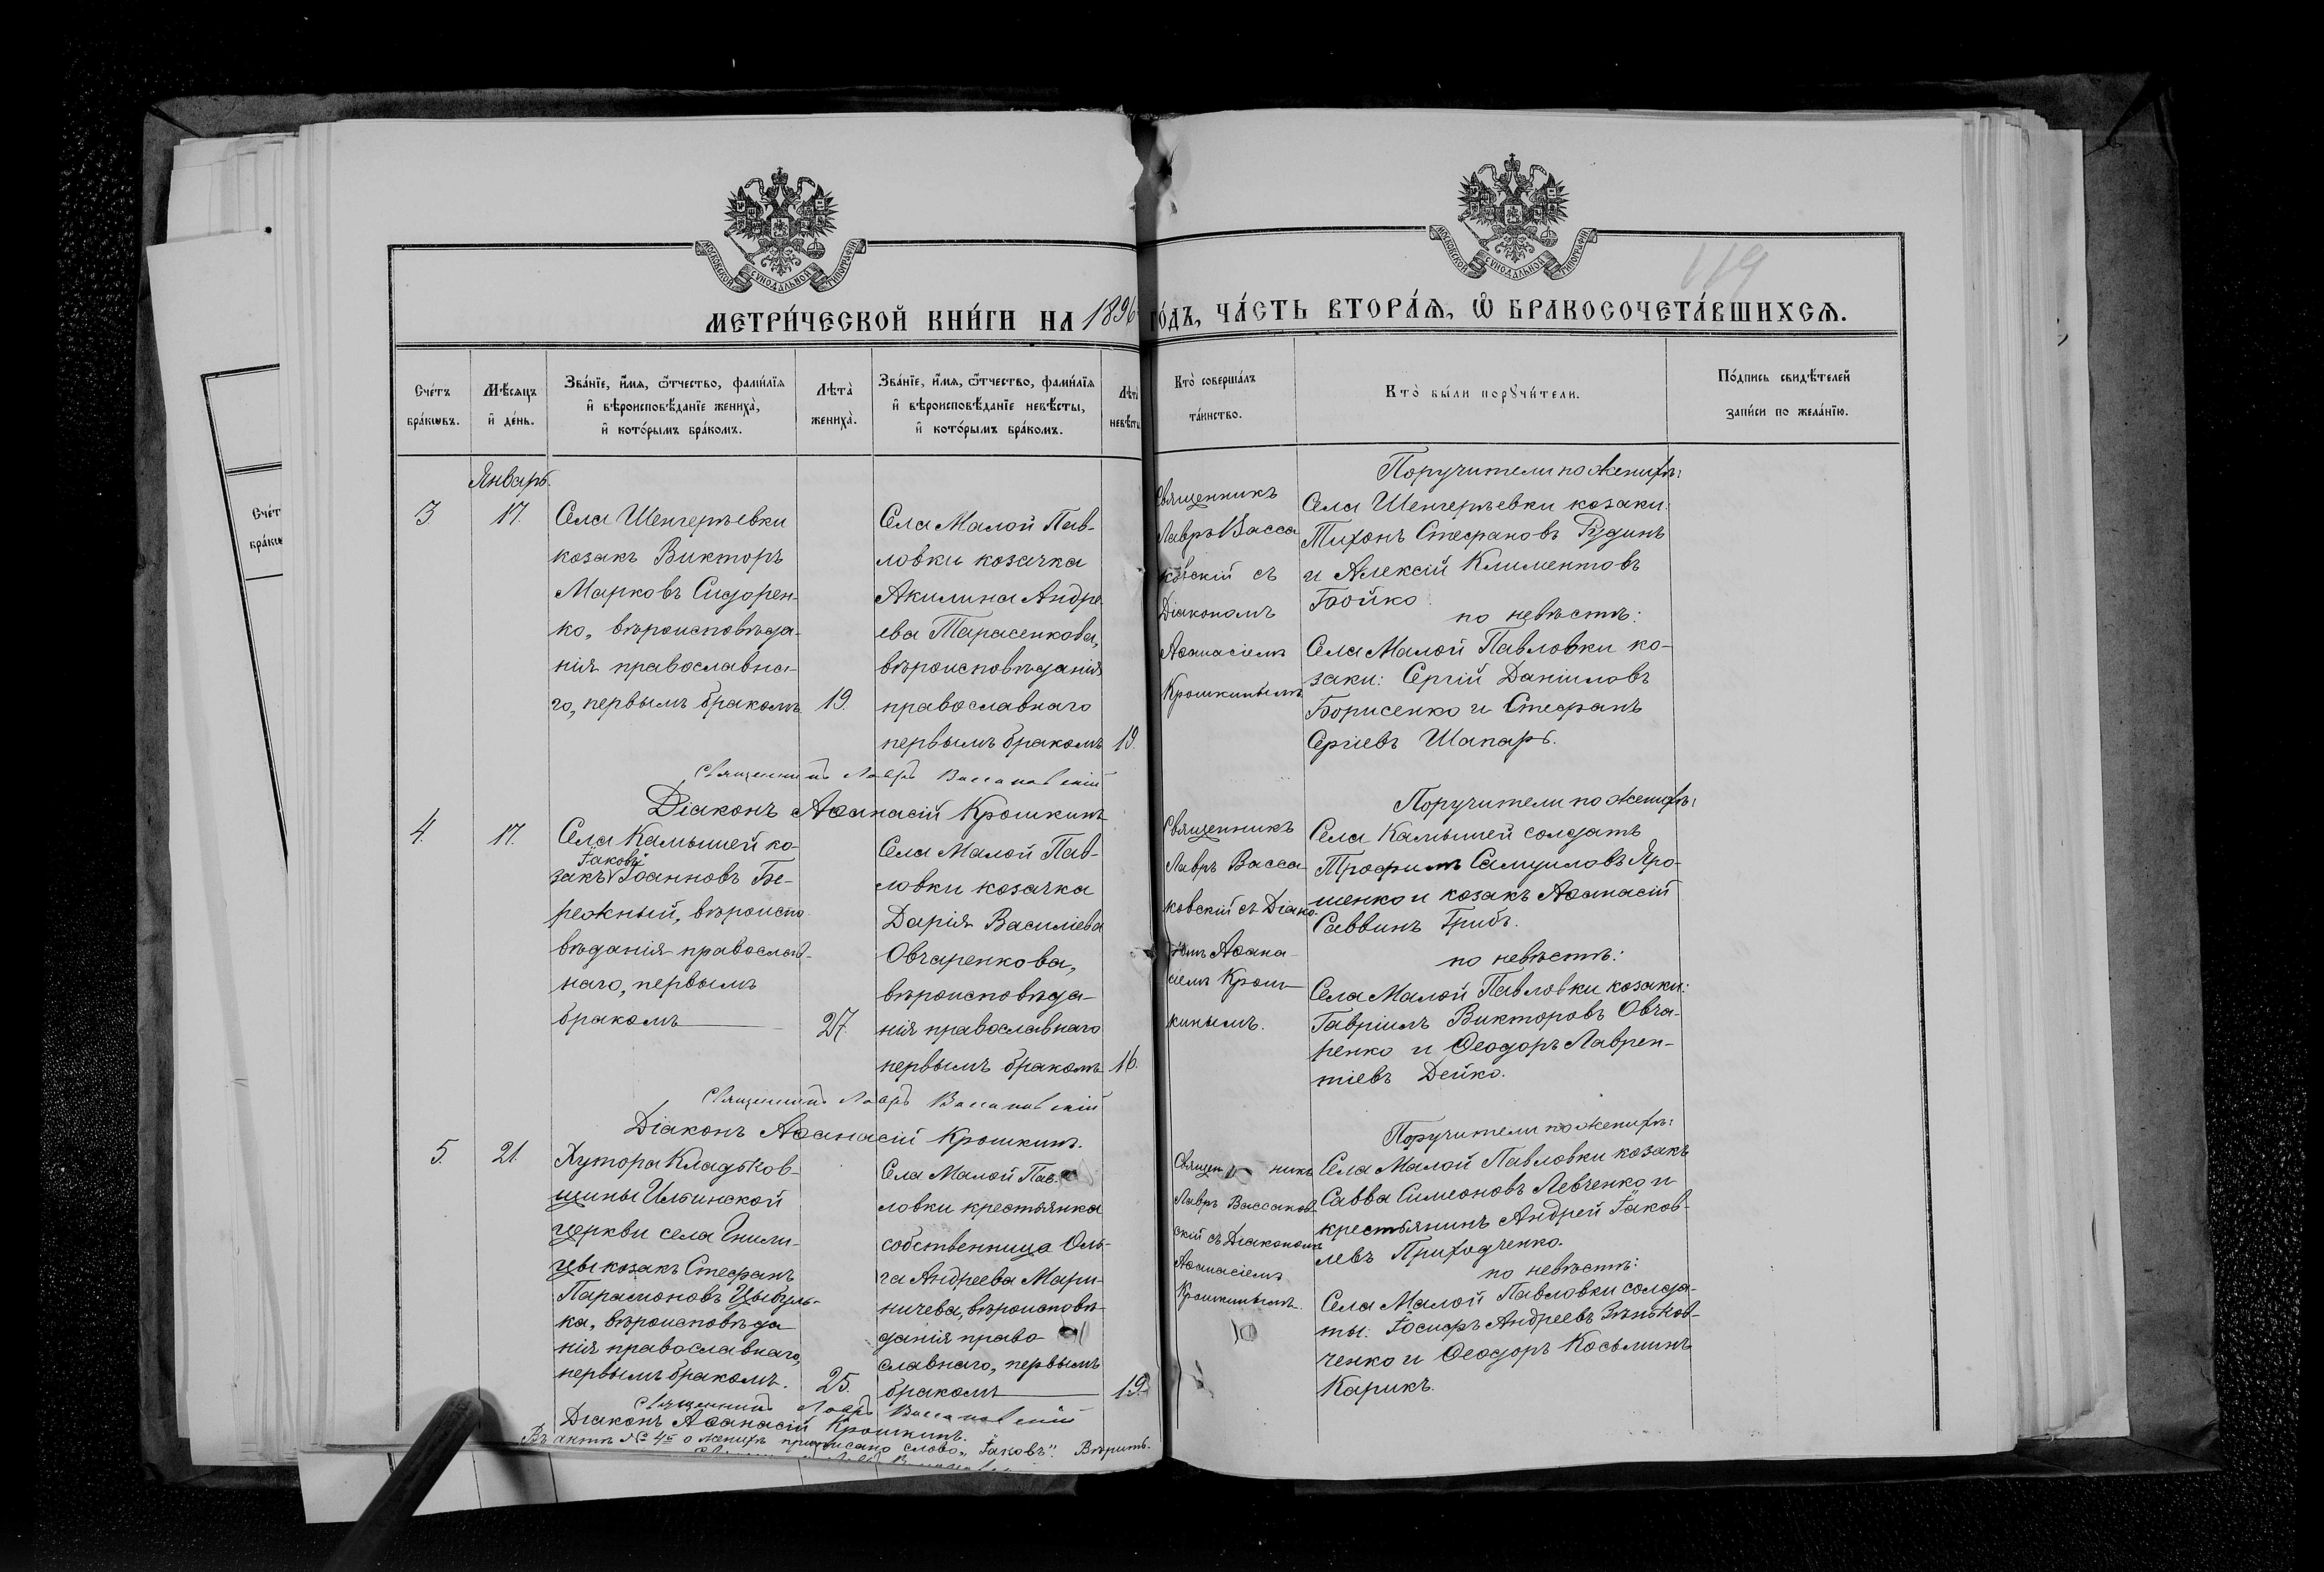 МОСКОВСКОЙ СѴНОДАЛЬНОЙ ТИПОГРАФІИ
МОСКОВСКОЙ СѴНОДАЛЬНОЙ ТИПОГРАФІИ
119
МЕТРИ́ЧЕСКОЙ КНИ́ГИ НА 1896 ГО́ДЪ, ЧА́СТЬ ВТОРА́Ѧ, Ѽ БРАКОСОЧЕТА́ВШИХСѦ.
Сче́тъ бра́кѡвъ.
Мѣ́сяцъ и҆ де́нь.
Зва́нїе, и҆́мя, ѻ҆́тчество, фами́лїя и҆ вѣроисповѣ́данїе жениха̀, и҆ кото́рымъ бра́комъ.
Лѣта̀ жениха̀.
Зва́нїе, и҆́мя, ѻ҆́тчество, фами́лїя и҆ вѣроисповѣ́данїе невѣ́сты, и҆ кото́рымъ бра́комъ.
Лѣта̀ невѣ́сты
Кто̀ соверша́лъ та́инство.
Кто̀ бы́ли порꙋчи́тели.
По́дпись свидѣ́телей за́писи по жела́нїю.
Январь.
3. 17.
Села Шенгерѣевки
козакъ Викторъ
Марковъ Сидорен-
ко, вѣроисповѣда-
нія православна-
го, первымъ бракомъ 19.
Села Малой Пав-
ловки козачка
Акилина Андре
ева Тарасенкова,
вѣроисповѣданія
православнаго
первымъ бракомъ 19.
Священникъ
Лавръ Васса
ковскій съ
Діакономъ
Аѳанасіемъ
Крошкинымъ
Поручители по женихѣ:
Села Шенгерѣевки козаки:
Тихонъ Стефановъ Рудинъ
и Алексій Климентовъ
Бойко.
по невѣстѣ:
Села Малой Павловки ко-
заки: Сергій Даніиловъ
Борисенко и Стефанъ
Сергіевъ Шапарь.
Священникъ Лавръ Вассаковскій
Діаконъ Аѳанасій Крошкинъ
4. 17.
Села Камышей ко-
Іаковъ
закъ Іоанновъ Бе-
режный, вѣроиспо
вѣданія православ-
наго, первымъ
бракомъ 27.
Села Малой Пав-
ловки козачка
Дарія Василіева
Овчаренкова,
вѣроисповѣда-
нія православнаго
первымъ бракомъ 16.
Священникъ
Лавръ Васса
ковскій съ Діако-
номъ Аѳана-
сіемъ Крош-
кинымъ.
Поручители по женихѣ:
Села Камышей солдатъ
Трофимъ Самуиловъ Яро-
шенко и козакъ Аѳанасій
Саввинъ Грибъ.
по невѣстѣ:
Села Малой Павловки козаки:
Гавріилъ Викторовъ Овча-
ренко и Ѳеодоръ Лаврен-
тіевъ Дейко.
Священникъ Лавръ Вассаковскій
Діаконъ Аѳанасій Крошкинъ.
5. 21.
Хутора Кладьков-
щины Ильинской
церкви села Гнили-
цы козакъ Стефанъ
Парамоновъ Цыбуль-
ка, вѣроисповѣда
нія православнаго,
первымъ бракомъ. 25.
Села Малой Пав-
ловки крестьянка
собственница Оль-
га Андреева Мари-
ничева, вѣроисповѣ-
данія право-
славнаго, первымъ
бракомъ 19.
Священникъ
Лавръ Вассаков-
скій съ Діакономъ
Аѳанасіемъ
Крошкинымъ.
Поручители по женихѣ:
Села Малой Павловки козакъ
Савва Симеоновъ Левченко и
крестьянинъ Андрей Іаков-
левъ Приходченко.
по невѣстѣ:
Села Малой Павловки солда-
ты: Іосифъ Андреевъ Зѣньков-
ченко и Ѳеодоръ Косьминъ
Карикъ.
Священникъ Лавръ Вассаковскій
Діаконъ Аѳанасій Крошкинъ.
Въ актѣ № 4й о женихѣ приписано слово „Іаковъ". Вѣрить.